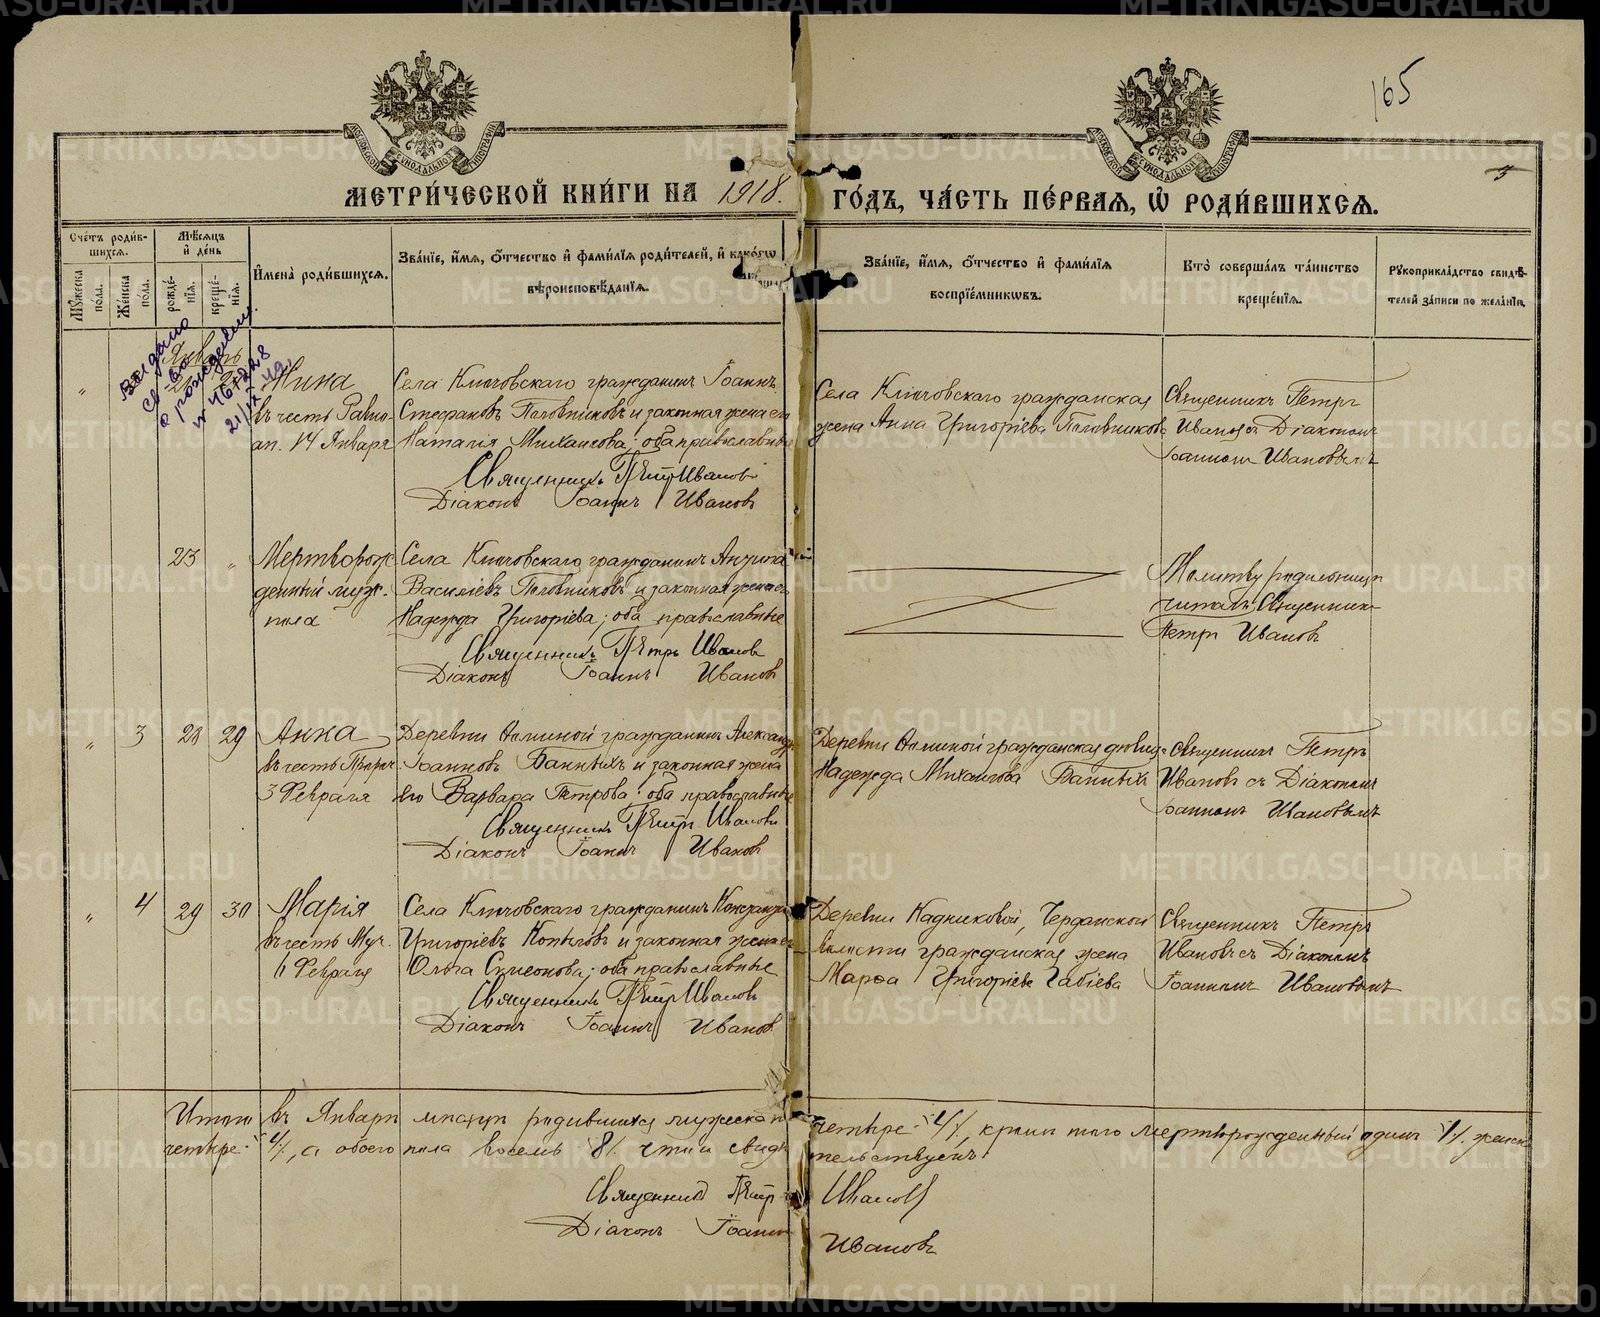 165
5
МЕТРИ́ЧЕСКОЙ КНИ́ГИ НА 1918. ГО́ДЪ, ЧА́СТЬ ПЕ́РВАЯ, Ѡ҆ РОДИ́ВШИХСЯ.
Сче́тъ роди́вшихся.
Му́жеска по́ла.
Же́нска по́ла.
Мѣ́сяцъ и҆ де́нь
рожде́нїя.
креще́нїя.
И҆мена̀ роди́вшихся.
Зва́нїе, и҆́мя, ѻ҆́тчество и҆ фами́лїя роди́телей, и҆ како́гѡ
вѣроисповѣ́данїя.
Зва́нїе, и҆́мя, ѻ҆́тчество и҆ фами́лїя
воспрїе́мникѡвъ.
Кто̀ соверша́лъ та́инство
креще́нїя.
Рꙋкоприкла́дство свидѣ́телей за́писи по жела́нїю.
Январь
Выдано
св-во
о рождении
21/IX-49
Нина
въ честь Равно-
ап. 14 Января
Села Ключовскаго гражданинъ Іоаннъ
Стефановъ Половниковъ и законная жена его
Наталія Михаилова; оба православные
Священникъ Петръ Ивановъ
Діаконъ Іоаннъ Ивановъ
Села Ключовскаго гражданская
жена Анна Григоріева Половникова
Священникъ Петръ
Ивановъ съ Діакономъ
Іоанномъ Ивановымъ
23 "
Мертворож-
денный муж.
пола
Села Ключовскаго гражданинъ
Василіевъ Половниковъ и законная жена его
Надежда Григоріева; оба православные
Священникъ Петръ Ивановъ
Діаконъ Іоаннъ Ивановъ
Молитву родильницѣ
читалъ Священникъ
Петръ Ивановъ
" 3 28 29
Анна
въ честь Прор.
3 Февраля
Деревни гражданинъ Александръ
Іоанновъ Банныхъ и законная жена
его Варвара Петрова; оба православные
Священникъ Петръ Ивановъ
Діаконъ Іоаннъ Ивановъ
Деревни гражданская дѣвица
Надежда Михаилова Банныхъ
Священникъ Петръ
Ивановъ съ Діакономъ
Іоанномъ Ивановымъ
" 4 29 30
Марія
въ честь Муч.
6 Февраля
Села Ключовскаго гражданинъ
Григоріевъ Копыловъ и законная жена его
Ольга Симеонова; оба православные
Священникъ Петръ Ивановъ
Діаконъ Іоаннъ Ивановъ
Деревни Кадниковой,
волости гражданская жена
Марѳа Григоріева
Священникъ Петръ
Ивановъ съ Діакономъ
Іоанномъ Ивановымъ
Итого въ Январѣ мѣсяцѣ родившихся мужеска п. четыре: /4/, кромѣ того мертворожденный одинъ /1/. женска
четыре: /4/, а обоего пола восемь /8/. что и свидѣтельствуемъ
Священникъ Петръ Ивановъ
Діаконъ Іоаннъ Ивановъ
METRIKI.GASO-URAL.RU